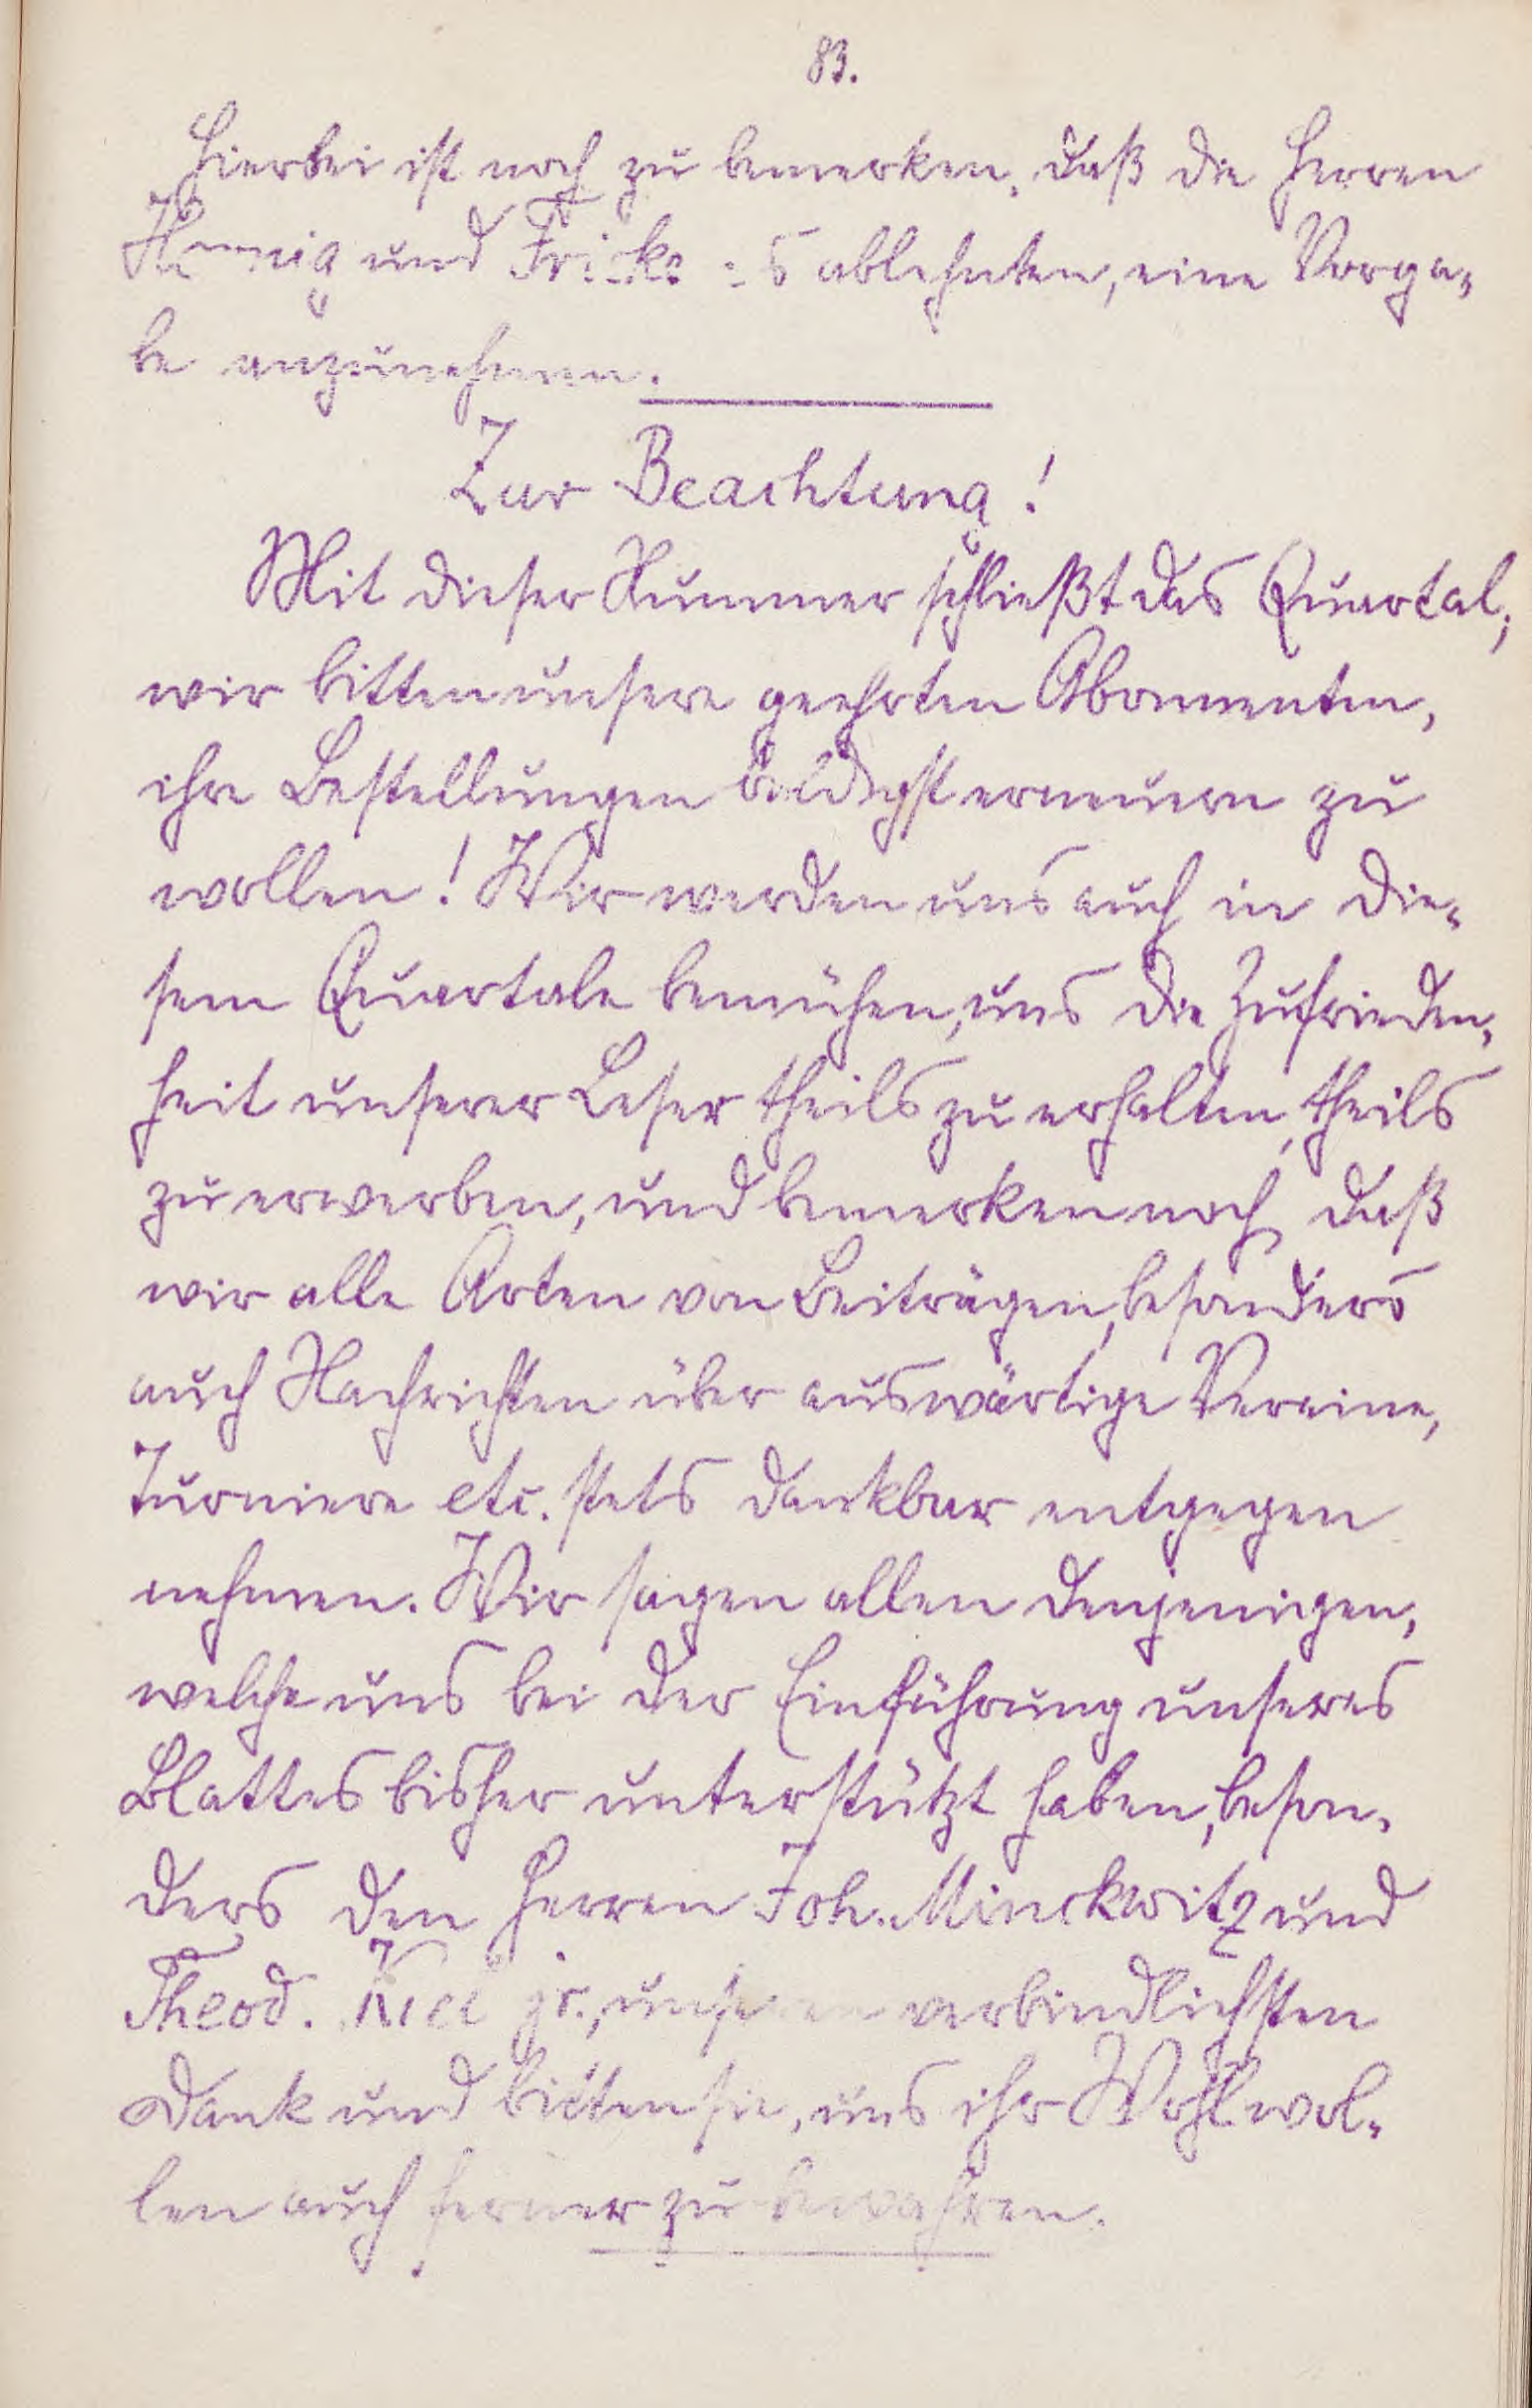 83.
Hierbei ist noch zu bemerken, daß die Herren
und Fricke es ablehnten, eine Vorga-
be anzunehmen.
Zur Beachtung!
Mit dieser Nummer schließt das Quartal;
wir bitten unsere geehrten Abonnenten,
ihre Bestellungen baldigst erneuern zu
wollen! Wir werden uns auch in die-
sem Quartale bemühen, uns die Zufrieden-
heit unserer Leser theils zu erhalten, theils
zu erwerben, und bemerken noch, daß
wir alle Arten von Beiträgen, besonders
auch Nachrichten über auswärtige Vereine,
Turniere etc. stets dankbar entgegen
nehmen. Wir sagen allen denjenigen,
welche uns bei der Einführung unseres
Blattes bisher unterstützt haben, beson-
ders den Herren Joh. Minckwitz und
Theod. jr., unseren verbindlichsten
Dank und bitten sie, uns ihr Wohlwol-
len auch ferner zu bewahren.